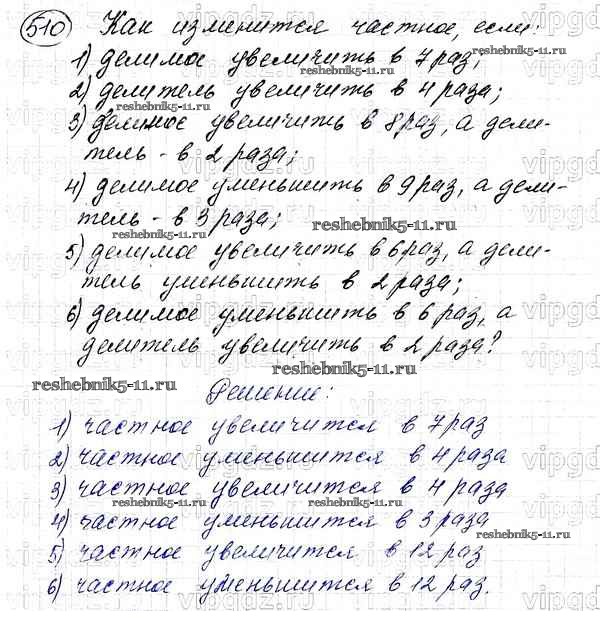 510 Как изменится частное, если:
1) делимое увеличить в 7 раз;
2) делитель увеличить в 4 раза;
reshebnik5-11.ru
3) делимое увеличить в 8 раз, а дели-
тель - в 2 раза;
4) делимое уменьшить в 9 раз, а дели-
тель - в 3 раза;
reshebnik5-11.ru
5) делимое увеличить в 6 раз, а дели-
тель уменьшить в 2 раза;
6) делимое уменьшить в 6 раз, а
делитель увеличить в 2 раза?
reshebnik5-11.ru
Решение:
1) частное увеличится в 7 раз
2) частное уменьшится в 4 раза
3) частное увеличится в 4 раза
reshebnik5-11.ru
4) частное уменьшится в 3 раза
reshebnik5-11.ru
5) частное увеличится в 12 раз
6) частное уменьшится в 12 раз.
vipgdz.ru